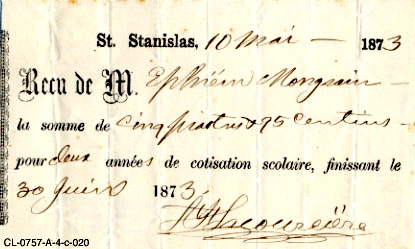 St. Stanislas, 10 Mai — 1873
Recu de M. Ephrèm Mongrain —
la somme de cinq piastres & 95 centins -
pour deux années de cotisation scolaire, finissant le
30 Juin 1873.
Lacoursière
CL-0757-A-4-c-020